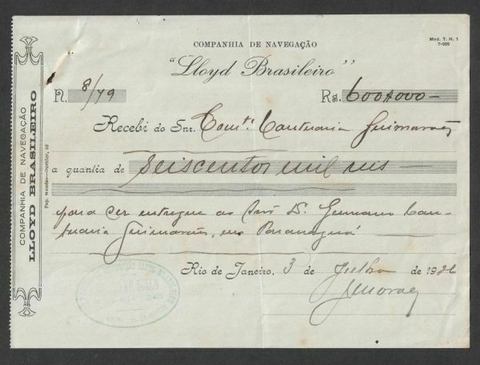 COMPANHIA DE NAVEGAÇÃO
Mod. T. N. 1
"Lloyd Brasileiro"
N. 8/79 Rs. 600$000
Recebi do Snr. Comte. Cantuaria Guimarães
a quantia de seiscentos mil reis
para ser entregue ao D. Germano Can-
tuaria Guimarães, em Paranaguá
Rio de Janeiro, 3 de Julho de 1926
JMoraes
COMPANHIA DE NAVEGAÇÃO
LLOYD BRASILEIRO